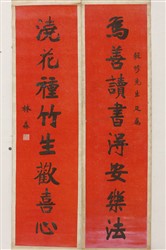 為善讀書得安樂法
澆花種竹生歡喜心